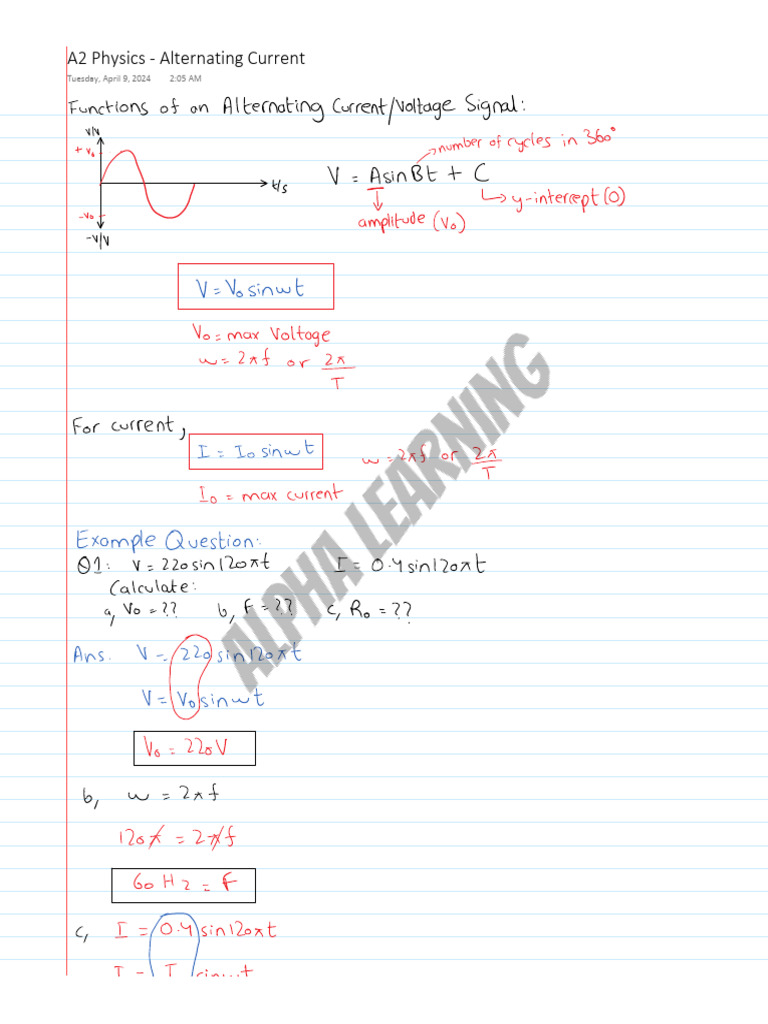 A2 Physics - Alternating Current
Tuesday, April 9, 2024 2:05 AM
Functions of an Alternating Current/Voltage Signal:
V/V
+V₀
-V₀
-V/V
t/s
number of cycles in 360°
V = AsinBt + C
amplitude (V₀)
y-intercept (0)
V = V₀ sinwt
V₀ = max Voltage
w = 2πf or 2π/T
For current,
I = I₀ sinwt
w = 2πf or 2π/T
I₀ = max current
Example Question:
Q1: V = 220sin120πt I = 0.4sin120πt
Calculate:
a, V₀ = ?? b, F = ?? c, R₀ = ??
Ans. V = 220sin120πt
V = V₀ sinwt
V₀ = 220V
b, w = 2πf
120π = 2πf
60Hz = F
c, I = 0.4sin120πt
I = I sinwt
ALPHA LEARNING